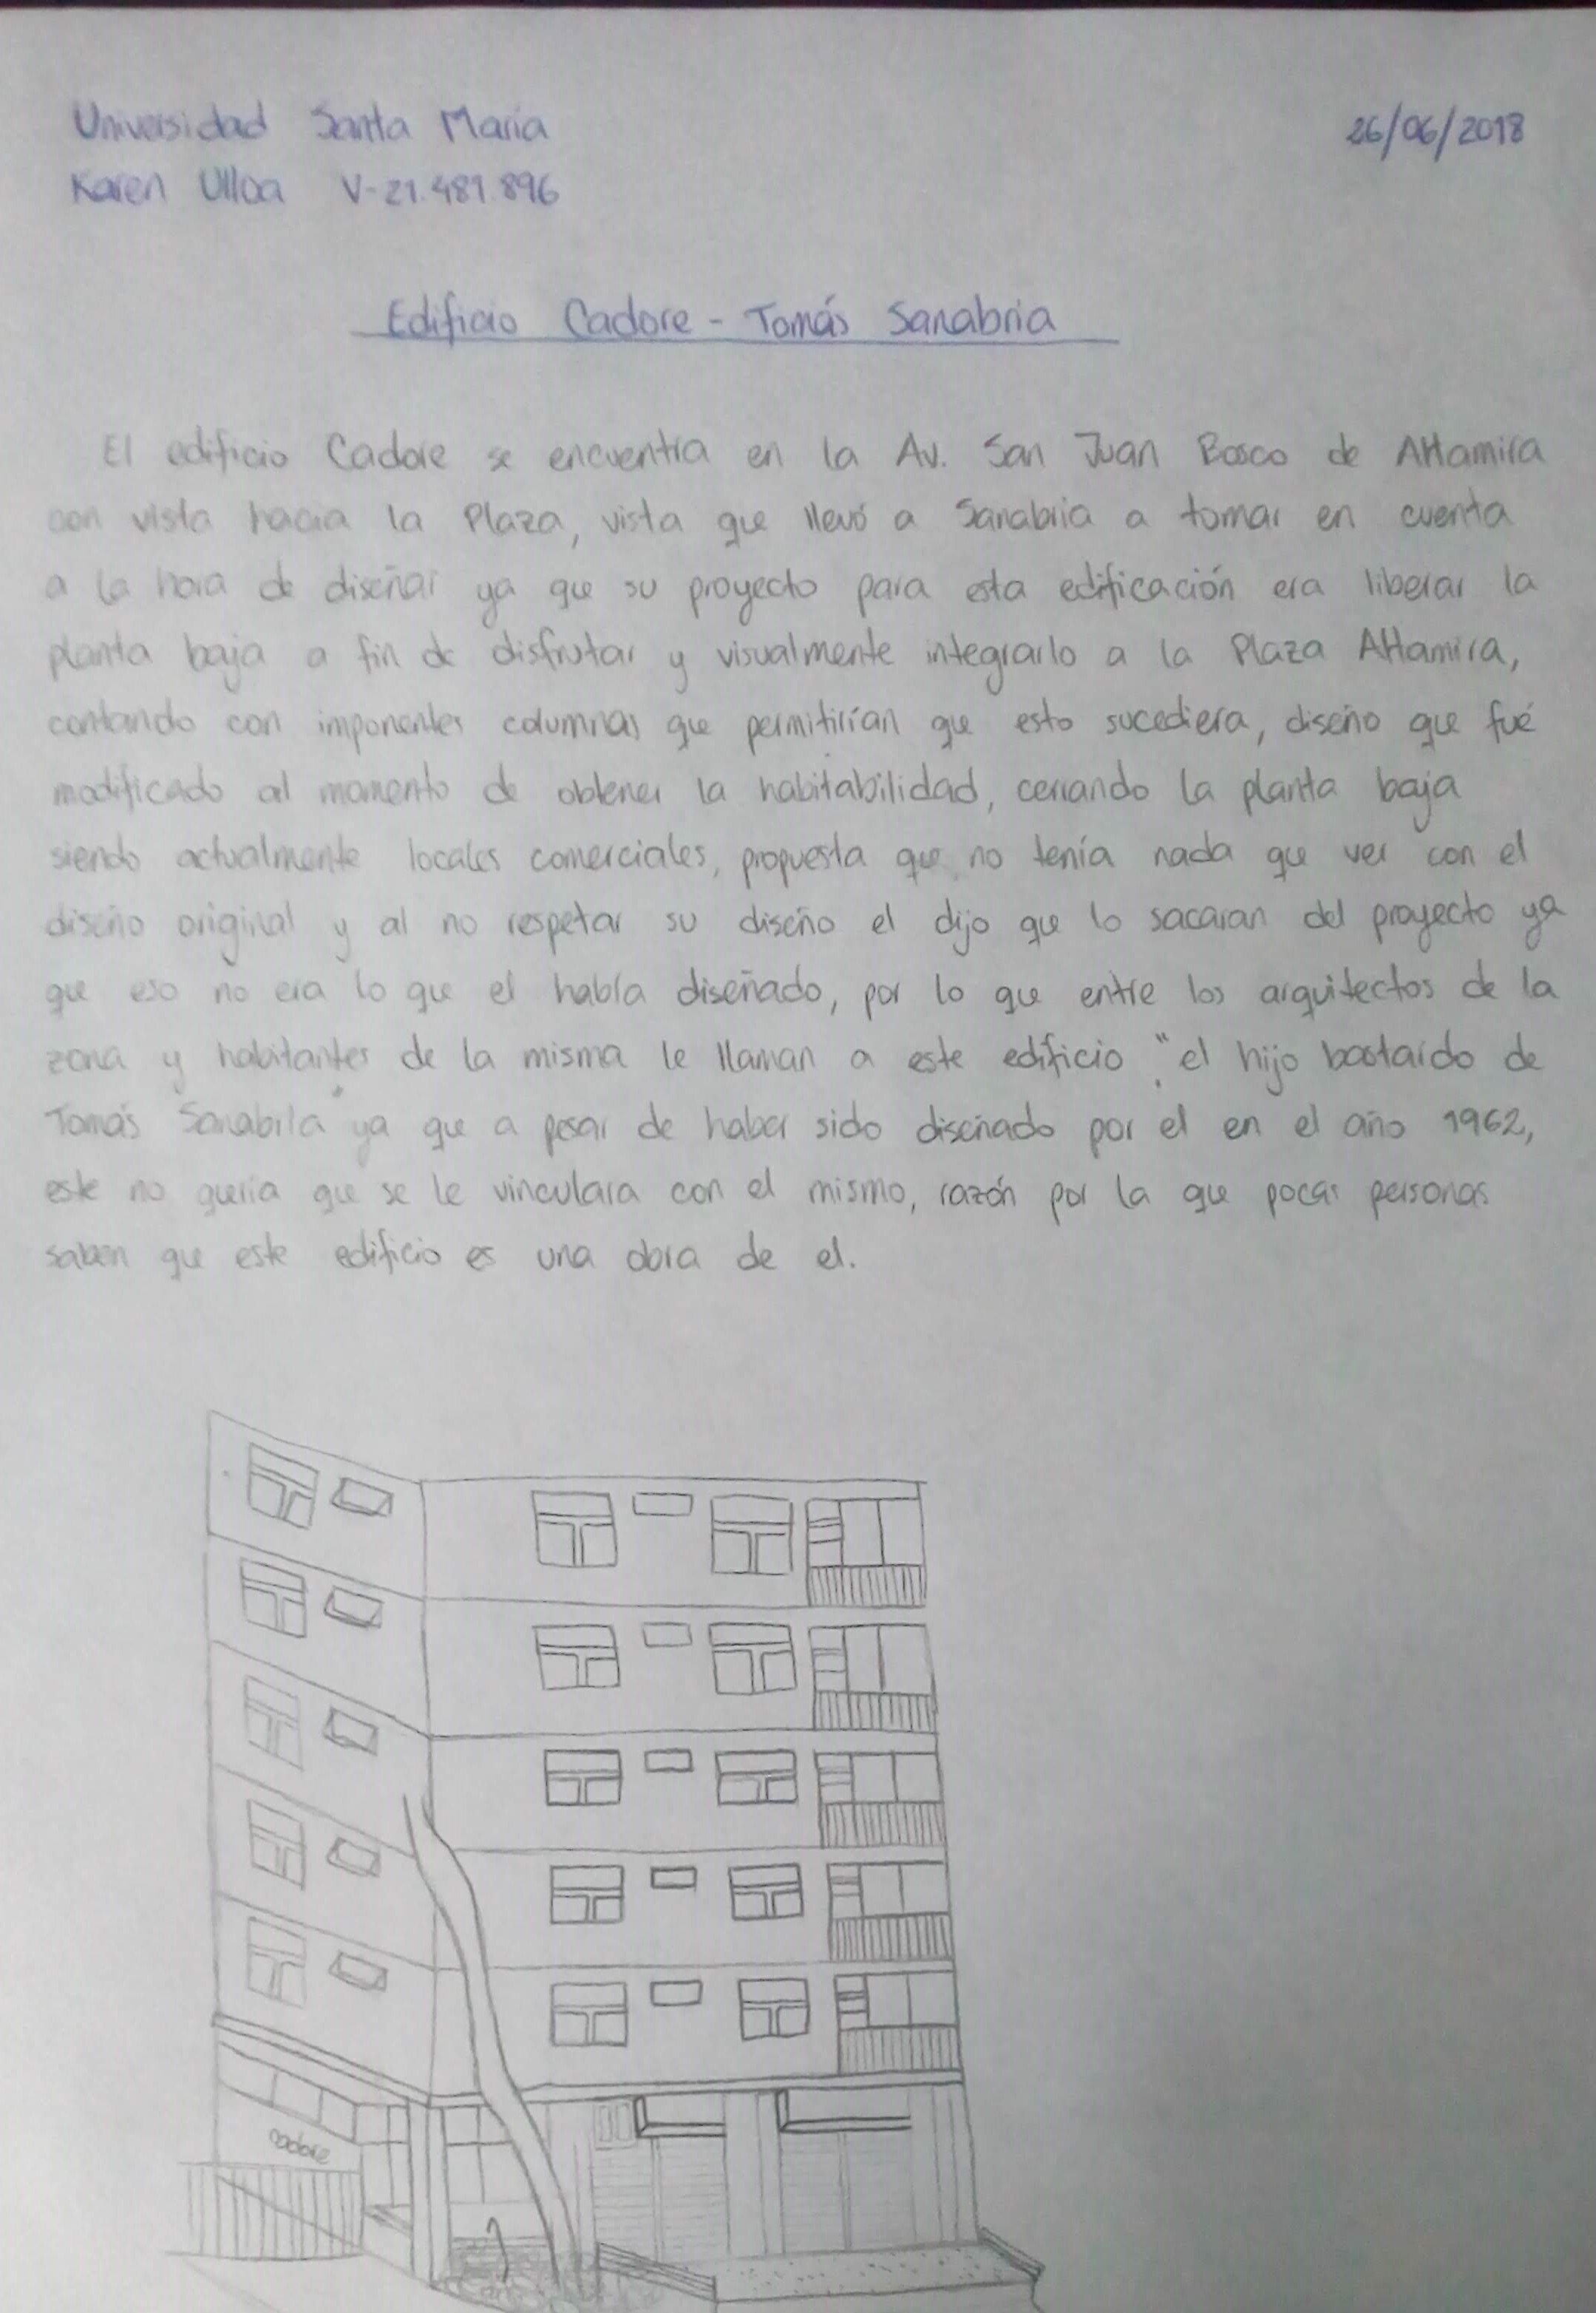 Universidad Santa María
26/06/2018
Karen Ulloa V-21.481.896
Edificio Cadore - Tomás Sanabria
El edificio Cadore se encuentra en la Av. San Juan Bosco de Altamira
con vista hacia la Plaza, vista que llevó a Sanabria a tomar en cuenta
a la hora de diseñar ya que su proyecto para esta edificación era liberar la
planta baja a fin de disfrutar y visualmente integrarlo a la Plaza Altamira,
contando con imponentes columnas que permitirían que esto sucediera, diseño que fué
modificado al momento de obtener la habitabilidad, cerrando la planta baja
siendo actualmente locales comerciales, propuesta que no tenía nada que ver con el
diseño original y al no respetar su diseño el dijo que lo sacaran del proyecto ya
que eso no era lo que el había diseñado, por lo que entre los arquitectos de la
zona y habitantes de la misma le llaman a este edificio "el hijo bastardo de
Tomás Sanabria" ya que a pesar de haber sido diseñado por el en el año 1962,
este no quería que se le vinculara con el mismo, razón por la que pocas personas
saben que este edificio es una obra de el.
cadore